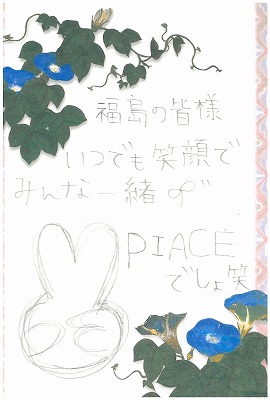 福島の皆様
いつでも笑顔で
みんな一緒の"
PIACE
でしょ笑